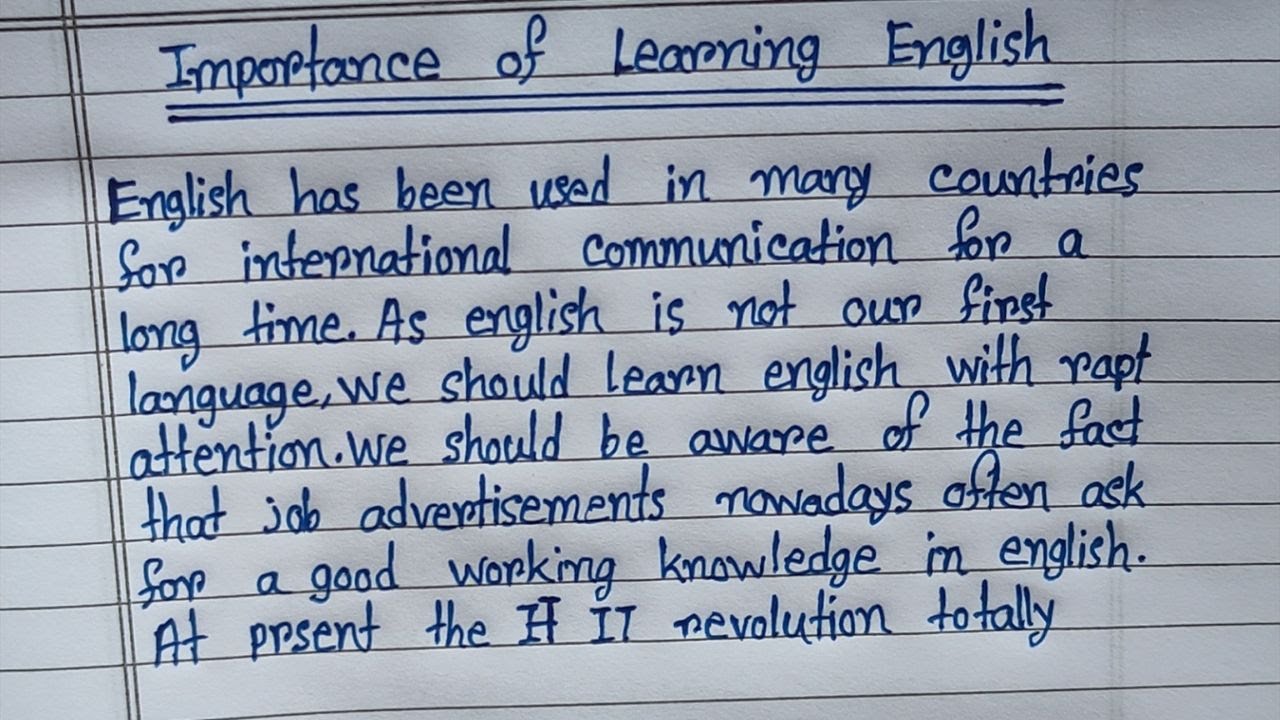 Importance of Learning English
English has been used in many countries
for international communication for a
long time. As english is not our first
language, we should learn english with rapt
attention. we should be aware of the fact
that job advertisements nowadays often ask
for a good working knowledge in english.
At prsent the IT revolution totally